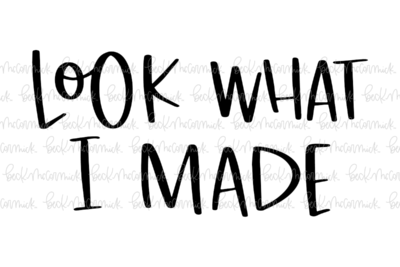 LOOK WHAT
I MADE